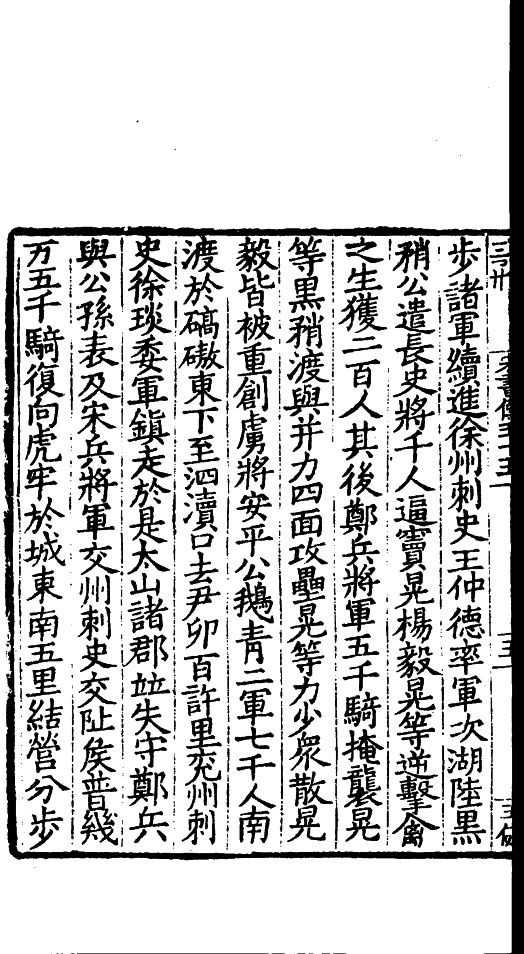 歩諸軍續進徐州刺史王仲德率軍次湖陸黒
矟公遣長史將千人逼竇晃楊毅晃等逆擊禽
之生獲二百人其後鄭兵將軍五千騎掩襲晃
等黒矟渡與并力四面攻壘晃等力少衆散晃
毅皆被重創虜將安平公鵝青二軍七千人南
渡於碻磝東下至泗瀆口去尹卯百許里兖州刺
史徐琰委軍鎮走於是太山諸郡並失守鄭兵
與公孫表及宋兵將軍交州刺史交阯侯普幾
万五千騎復向虎牢於城東南五里結營分歩